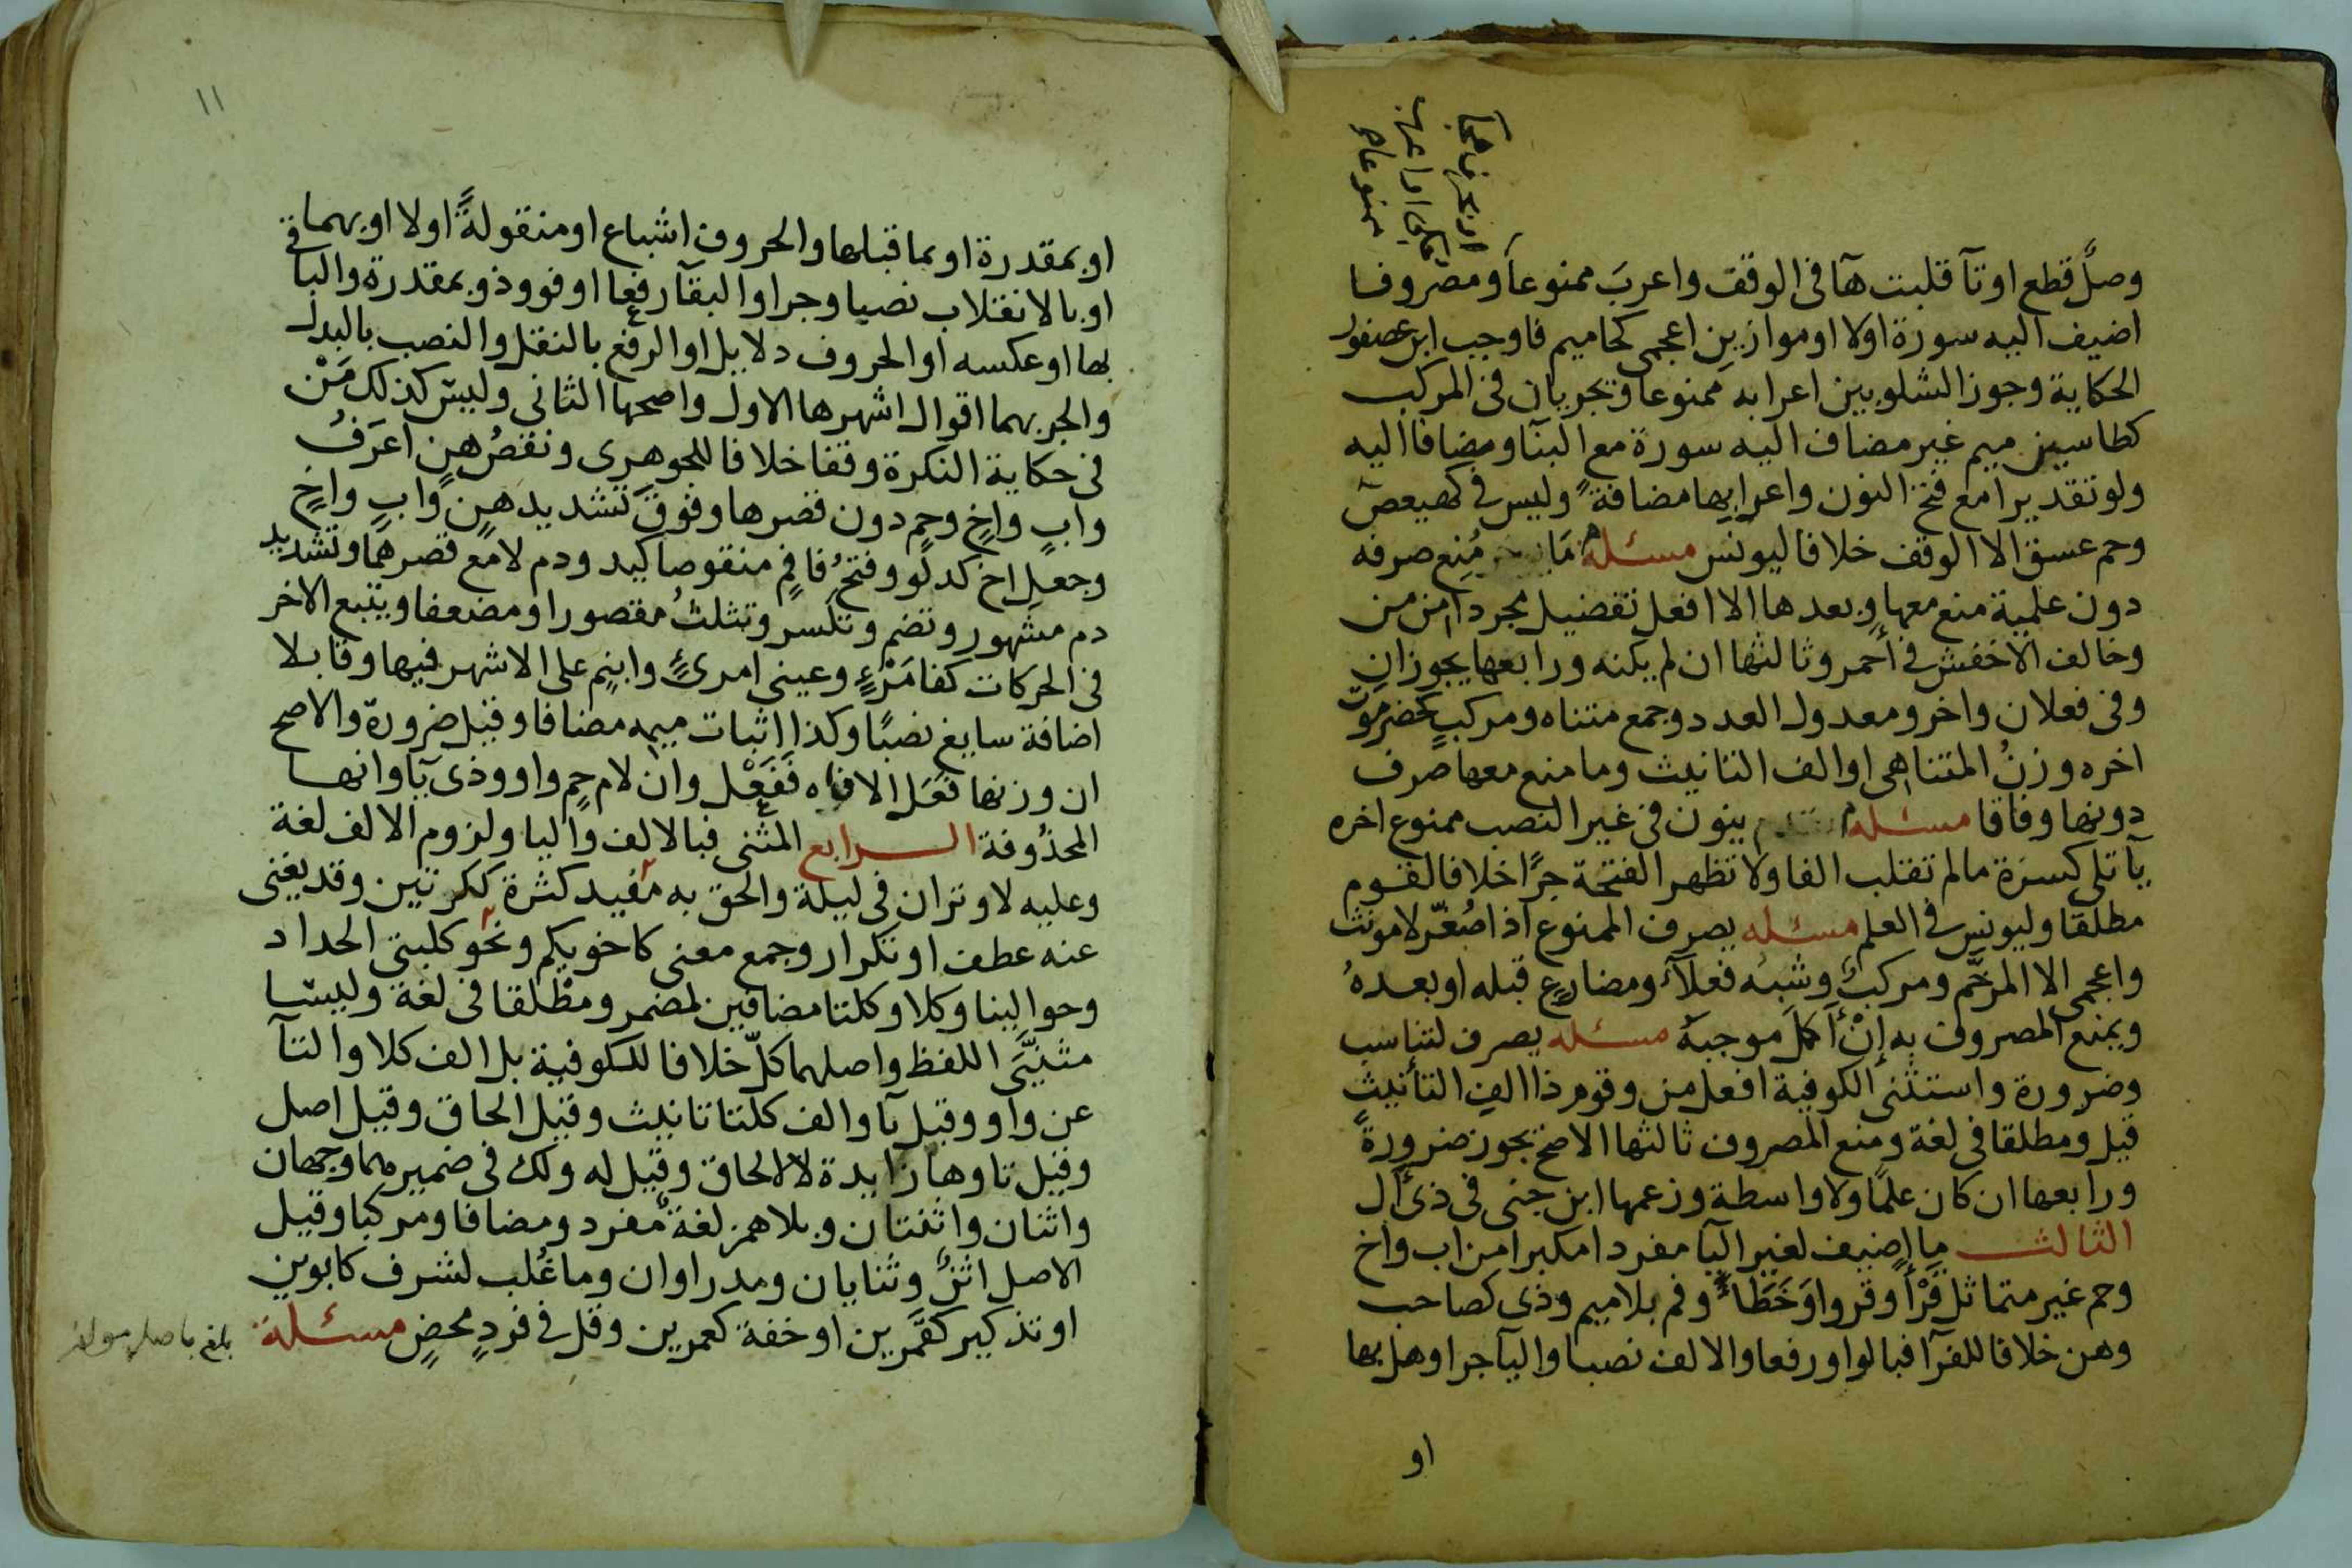 او بحرف هجآ
فالحكاية او اعرابها
ممنوعا صح
وصلٌ قطع او تآ قلبت هآ فى الوقف واعربَ ممنوعا ومصروفا
اضيف اليه سورة اولا او موازينِ اعجمى كحاميم فاوجب ابن عصفور
الحكاية وجوز الشلوبين اعرابه ممنوعا وتجريان فى المركب
كطاسين ميم غير مضاف اليه سورة مع البنآ ومضافا اليه
ولو تقديرا مع فتح النون واعرابها مضافة وليس فى كهيعص
وحم عسق الا الوقف خلافا ليونس مسئلة مَا مُنِع صرفه
دون علمية منع معها وبعدها الا افعل تفضيل مجردا من من
وخالف الاخفش فى أحمر وثالثها ان لم يكنه ورابعها يجوزان
وفى فعلان واخر ومعدول العدد وجمع متناه ومركبٍ كحضرموت
اخره وزنُ المتناهى او الف التانيث وما منع معها صرف
دونها وفاقا مسئلة ينون فى غير النصب ممنوع اخره
يآ تلى كسرة مالم تقلب الفا ولا تظهر الفتحة جرًا خلافا لقوم
مطلقا وليونس فى العلم مسئله يصرف الممنوع اذا صُغّر لا مونث
واعجمى الا المرخَّم ومركبٌ وشبه فعلآء ومضارعٍ قبله او بعدهُ
ويمنع المصروف به إنْ أكمل موجبَه مسئله يصرف لتناسب
وضرورة واستثنى الكوفية افعل من وقوم ذا الفِ التأنيثِ
قيل ومطلقا فى لغة ومنع المصروف ثالثها الاصح يجوز ضرورةً
ورابعها ان كان علمًا ولا واسطة وزعمها ابن جنى فى ذى ال
الثالث ما اضيف لغير اليآ مفردا مكبرا من اب واخ
وحم غير متماثل قَرْأ وقروا وَخَطَاءً وفم بلا ميم وذى كصاحب
وهن خلافا للفرآ فبالواو رفعا والالف نصبا واليآ جرا وهل بها
او
١١
او بمقدرة او بما قبلها والحروف اشباع او منقولةً اولا او بهما
او بالانقلاب نصبا وجرا والبقآ رفعا او فوو ذو بمقدرة والبا فى
بها او عكسه او الحروف دلايل او الرفع بالنقل والنصب بالبدل
والجر بهما اقوال اشهرها الاول واصحها الثانى وليس كذلك مَنْ
فى حكاية النكرة وقفا خلافا للجوهرى ونقصُ هنٍ اعرَفُ
وابٍ واخٍ وحمٍ دون قصرها وفوق تشديد هنٍ وابٍ واخٍ
وجعلِ اخ كدلو وفتحُ فا فمٍ منقوصا كيد ودم لا مع قصرهما وتشديد
دم مشهور وتضم وتكسر وتثلثُ مقصورا ومضعفا ويتبع الاخر
فى الحركات كفا مَرْءٍ وعينى امرىءٍ وابنمٍ على الاشهر فيها وقابلا
اضافة سايغ نصبًا وكذا اثبات ميمه مضافا وقيل ضرورة والاصح
ان وزنها فَعَل الا فاه فَفَعْل وان لام حمٍ واو وذى يآ وانها
المحذوفة الـــرابع المثنى فبالالف واليا ولزوم الالف لغة
وعليه لا وتران فى ليلة والحق به مفيد كثرة ككرتين وقد يغنى
عنه عطف او تكرار وجمع معنى كاخويكم ونحو كلبتى الحداد
وحوالينا وكلا وكلتا مضافين لمضمر ومطلقا فى لغة وليسا
مثنيَّى اللفظ واصلهما كلّ خلافا للكوفية بل الف كلا والتآ
عن واو وقيل يآ والف كلتا تانيث وقيل الحاق وقيل اصل
وقيل تاوها زايدة لا الالحاق وقيل له ولك فى ضميرهما وجهان
واثنان واثنتان وبلا همز لغة مفرد ومضافا ومركبا وقيل
الاصل اثنٌ وثنايان ومدراوان وما غُلب لشرف كابوين
او تذكير كقمَرين او خفة كعمرين وقل فى فردٍ محضٍ مسئلة
بلغ باصل مولفه